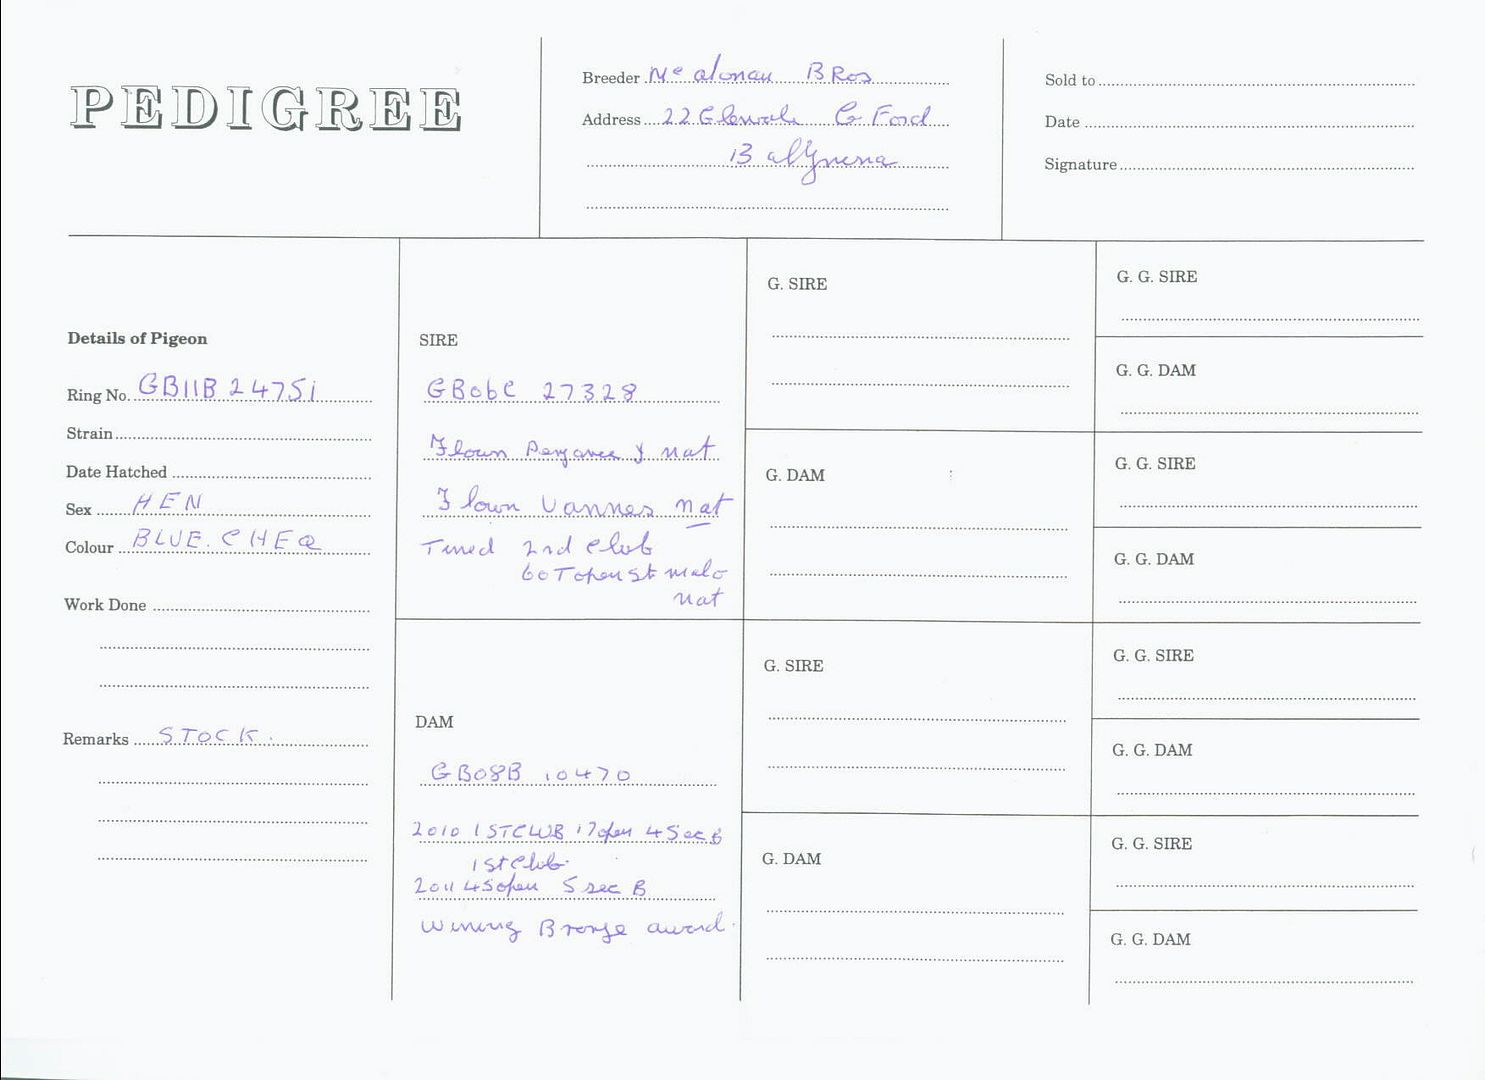 PEDIGREE
Breeder Mc alonan BRos
Address 22 Glenvale G Ford
Ballymena
Sold to
Date
Signature
Details of Pigeon
Ring No. GB11B 24751
Strain
Date Hatched
Sex HEN
Colour BLUE. CHEQ
Work Done
Remarks STOCK.
SIRE
GB06C 27328
Flown nat
Flown Vannes nat
Timed 2nd club
60T open St malo
nat
DAM
GB08B 10470
2010 1STCLUB 17open 4Sec B
1st Club
2011 45open 5 sec B
Wining Bronze award.
G. SIRE
G. DAM
G. SIRE
G. DAM
G. G. SIRE
G. G. DAM
G. G. SIRE
G. G. DAM
G. G. SIRE
G. G. DAM
G. G. SIRE
G. G. DAM